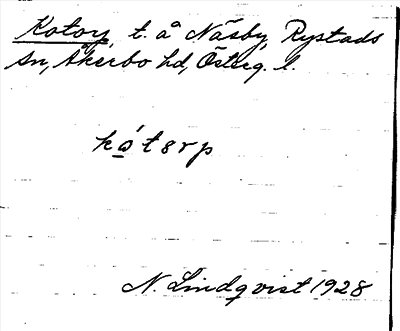 Kotorp, t. å Näsby, Rystads
sn, Åkerbo hd, Österg. l.
kótɛrp
N. Lindqvist 1928